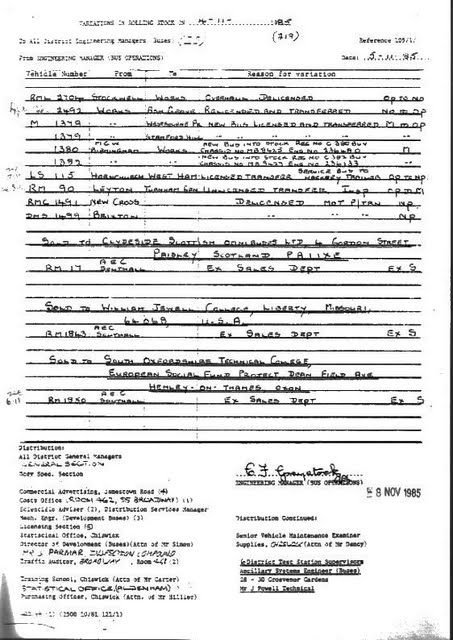 VARIATIONS IN ROLLING STOCK ON 4-11- 1985
(219)
To All District Engineering Managers Buses Reference 109/1/
From ENGINEERING MANAGER (BUS OPERATIONS) Date: 5-11-85
Vehicle Number From To Reason for variation
RML 2704 STOCKWELL WORKS OVERHAUL DELICENSED OP TO NO
2492 WORKS ASH GROVE RELICENSED AND TRANSFERRED NO TO OP
M 1379 WESTBOURNE PK NEW BUS LICENSED AND TRANSFERRED M TO OP
1379 " STAMFORD HILL " "
1380 MCW BIRMINGHAM WORKS NEW BUS INTO STOCK REG NO C380 BUV M
NEW BUS INTO STOCK REG NO
LS 115 HORNCHURCH WEST HAM LICENSED TRANSFER SERVICE BUS TO TRAINER OP TO NP
RM 90 LEYTON TURNHAM GRN UNLICENSED TRANSFER
RMC 1491 NEW CROSS DELICENSED MOT P/TRN NP
DMS 1499 BRIXTON " " " NP
SOLD TO CLYDESIDE SCOTTISH OMNIBUSES LTD, 4 GORDON STREET
PAISLEY SCOTLAND PA1 1XE
RM 17 AEC SOUTHALL EX SALES DEPT EX S
SOLD TO WILLIAM JEWELL COLLEGE, LIBERTY MISSOURI,
64068, U.S.A.
RM 1843 AEC SOUTHALL EX SALES DEPT EX S
SOLD TO SOUTH OXFORDSHIRE TECHNICAL COLLEGE,
EUROPEAN SOCIAL FUND PROJECT, DEAN FIELD AVE
HENLEY-ON-THAMES, OXON
6.11 RM 1950 AEC SOUTHALL EX SALES DEPT EX S
Distribution:
All District General Managers
GENERAL SECTION
Body Spec. Section
ENGINEERING MANAGER (BUS OPERATIONS)
8 NOV 1985
Commercial Advertising, Jamestown Road (4)
Costs Office (ROOM 462, 55 BROADWAY) (1)
Scientific Adviser (2), Distribution Services Manager
Mech. Engr. (Development Buses) (3)
Licensing Section (5)
Statistical Office, Chiswick
Director of Development (Buses)(Attn of Mr Simon)
MR J PARMAR, COMPOUND
Traffic Auditor, BROADWAY, ROOM (2)
Training School, Chiswick (Attn of Mr Carter)
STATISTICAL OFFICE (ALDENHAM)
Purchasing Office, Chiswick (Attn. of Mr Hillier)
Distribution Continued:
Senior Vehicle Maintenance Examiner
Supplies, CHISWICK (Attn of Mr Dancy)
6 District Test Station Supervisors
Ancillary Systems Engineer (Buses)
28 - 30 Grosvenor Gardens
Mr J Powell Technical
(1) (2500 10/81 121/1)